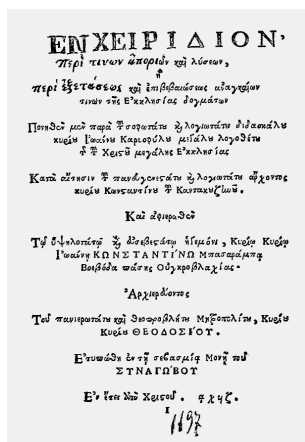 ΕΝΧΕΙΡΙΔΙΟΝ·
Περί τινων ἀποριῶν καὶ λύσεων,
ἢ
περὶ ἐξετάσεως καὶ ἐπιβεβαιώσεως ἀναγκαίων
τινων τῆς Ἐκκλησίας δογμάτων
Πονηθὲν μὲν παρὰ τοῦ σοφωτάτου καὶ λογιωτάτου διδασκάλου
κυρίου Ἰωάννου Καρυοφύλου μεγάλου λογοθέτου
τῆς τοῦ Χριστοῦ μεγάλης Ἐκκλησίας
Κατὰ αἴτησιν τοῦ πανευγενεστάτου καὶ λογιωτάτου ἄρχοντος
κυρίου Κωνσταντίνου τοῦ Καντακουζηνοῦ.
Καὶ ἀφιερωθὲν
Τῷ ὑψηλοτάτῳ καὶ εὐσεβεστάτῳ ἡγεμόνι, Κυρίῳ Κυρίῳ
Ἰωάννῃ ΚΩΝΣΤΑΝΤΙΝΩ Μπασαράμπᾳ
Βοεβόδᾳ πάσης Οὑγκροβλαχίας·
Ἀρχιερατεύοντος
Τοῦ πανιερωτάτου καὶ θεοπροβλήτου Μητροπολίτου, Κυρίου
Κυρίου ΘΕΟΔΟΣΙΟΥ.
Ἐτυπώθη ἐν τῇ σεβασμίᾳ Μονῇ τοῦ
ΣΥΝΑΓΩΒΟΥ
Ἐν ἔτει ἀπὸ Χριστοῦ. αχϟζ.
1697